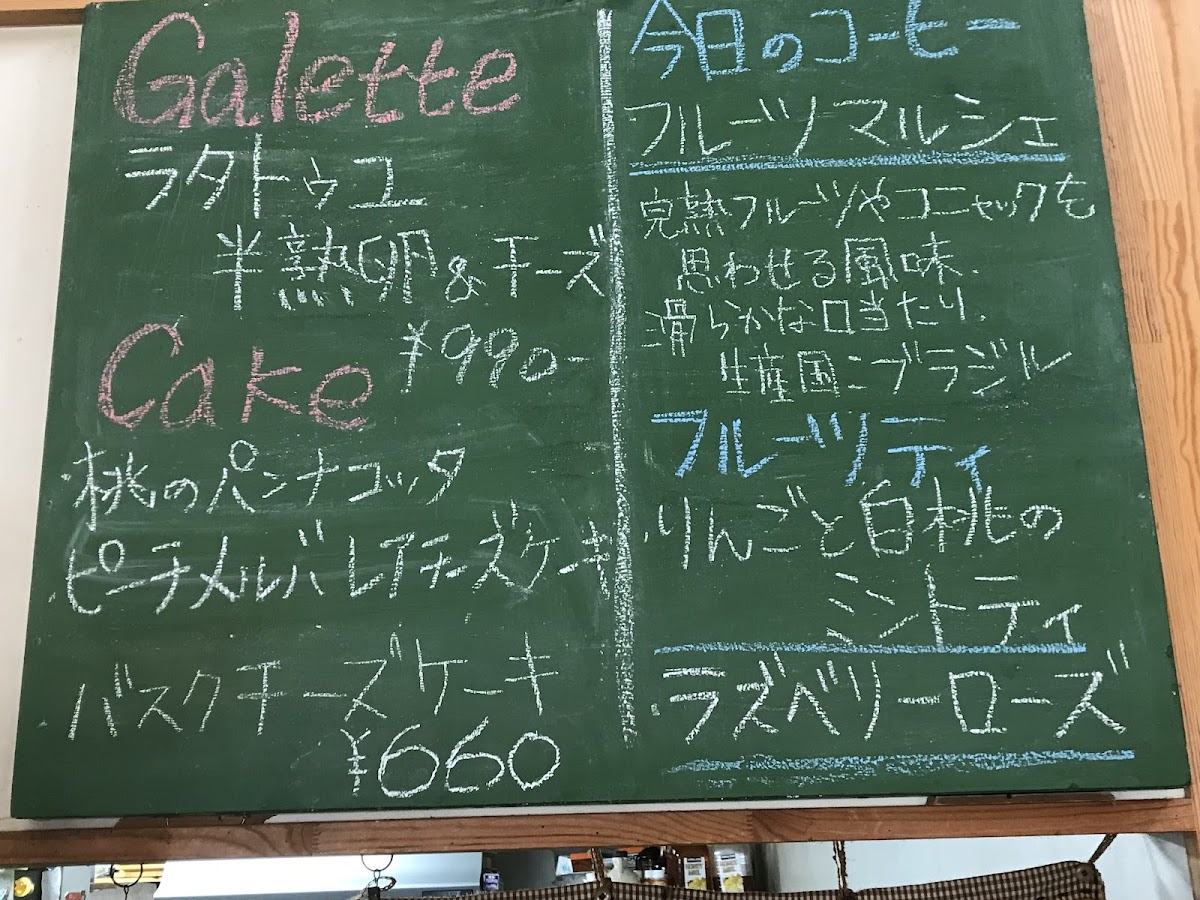 Galette
ラタトゥユ
半熟卵&チーズ
¥990-
Cake
・桃のパンナコッタ
・ピーチメルバレアチーズケーキ
・バスクチーズケーキ
¥660
今日のコーヒー
フルーツマルシェ
完熟フルーツやコニャックを
思わせる風味.
滑らかな口当たり.
生産国:ブラジル
フルーツティ
・りんごと白桃の
ミントティ
・ラズベリーローズ